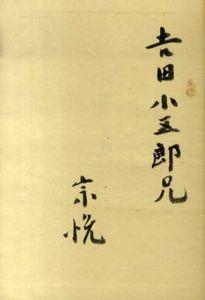 吉田小五郎兄
宗悦